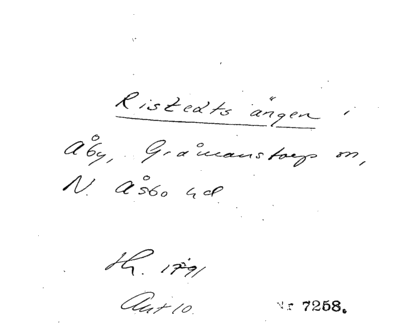 Ristedts ängen i
Åby, Gråmanstorps sn,
N. Åsbo hd.
Th. 1791
Ant 10.
Nr 7258.